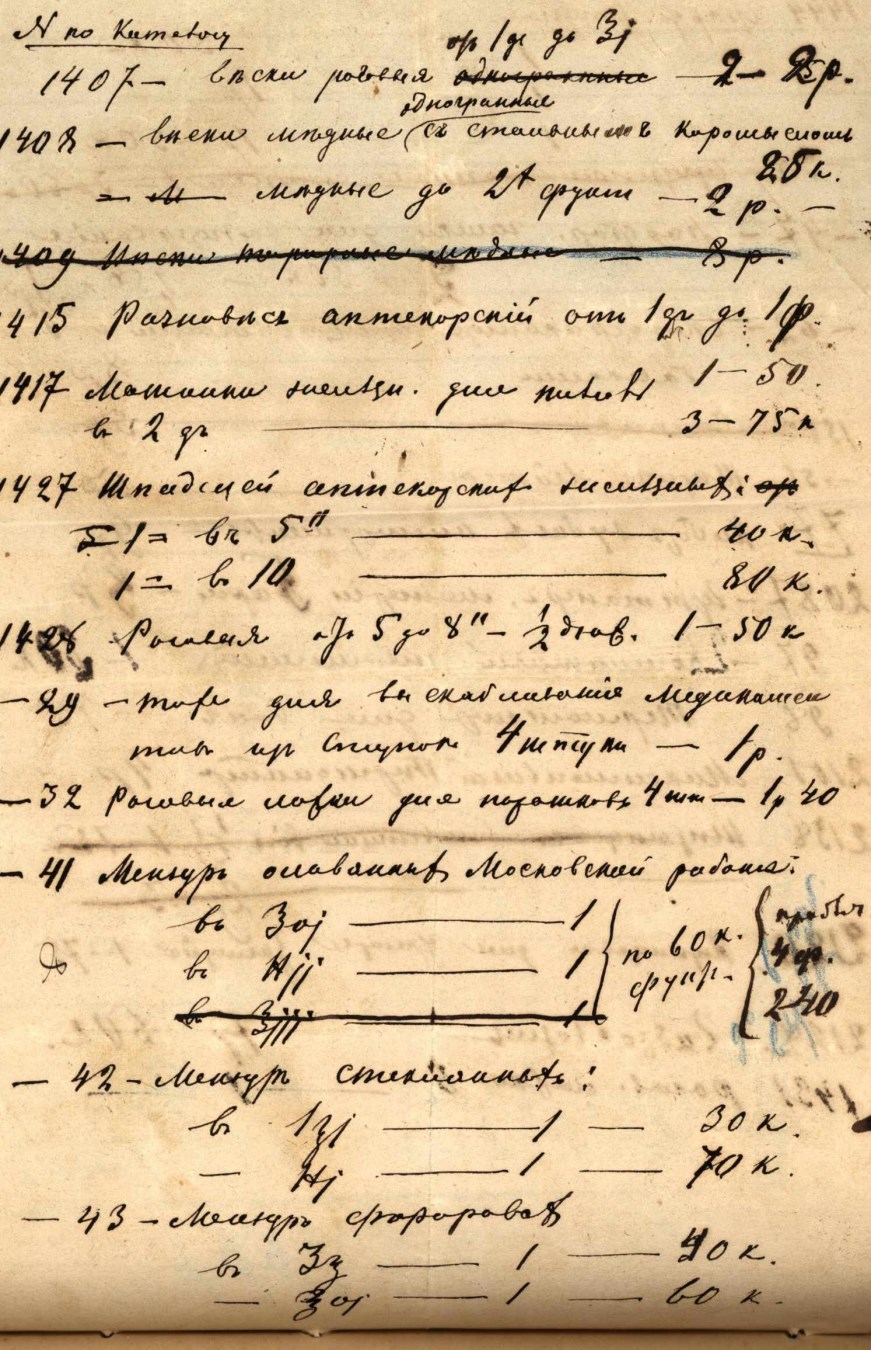 N по
отъ 1 gr до ʒj
1407 — вѣски роговыя одногранные — 2 — р.
одногранные
1408 — вѣски мѣдные (съ стальнымъ коромысломъ
25 к.
= мѣдные до 2 фунт — 2 р. —
1409 Вѣски тарирные мѣдные — 8 р.
1415 Разновѣсъ аптекарскій отъ 1 gr до 1
1417 железн. для 1 — 50.
в 2 3 — 75 к
1427 Шпаделей аптекарскихъ железныхъ:
1 = въ 5" — 40 к.
1 = в 10 — 80 к.
1428 Роговыя отъ 5 до 8" — ½ дюж. 1 — 50 к
— 29 — тоже для выскабливанія медикамен
товъ изъ ступокъ 4 штуки — 1 р.
— 32 Роговыя ложки для порошковъ 4 шт — 1 р 40
— 41 Мензуръ оловянныхъ Московской работы:
въ ʒvj — 1
въ ℔jj — 1 по 60 к. фунт.
в ʒjjj — 1
4 ф.
240
— 42 — Мензуръ стеклянныхъ:
в — 1 — 30 к.
— ℔j — 1 — 70 к.
— 43 — Мензуръ фарфоровыхъ
въ — 1 — 40 к.
— ʒvj — 1 — 60 к.